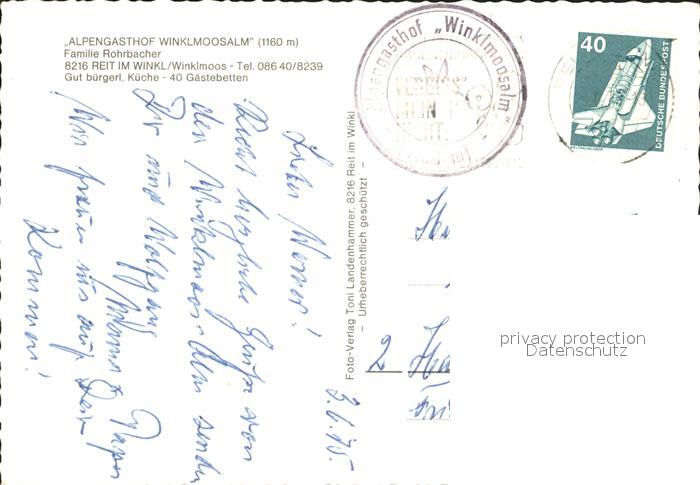 „ALPENGASTHOF WINKLMOOSALM" (1160 m)
Familie Rohrbacher
8216 REIT IM WINKL/Winklmoos - Tel. 086 40/8239
Gut bürgerl. Küche - 40 Gästebetten
Alpengasthof „Winklmoosalm"
40
DEUTSCHE BUNDESPOST
WELTRAUMLABOR
Foto-Verlag Toni Landenhammer, 8216 Reit im Winkl
– Urheberrechtlich geschützt –
3.6.75.
Lieber Werner!
Recht herzliche Grüße von
der Winklmoos-Alm senden
Dir und Wolfgang
Mama + Papa
Wir freuen uns auf Dein
Kommen!
2 Ha
privacy protection
Datenschutz